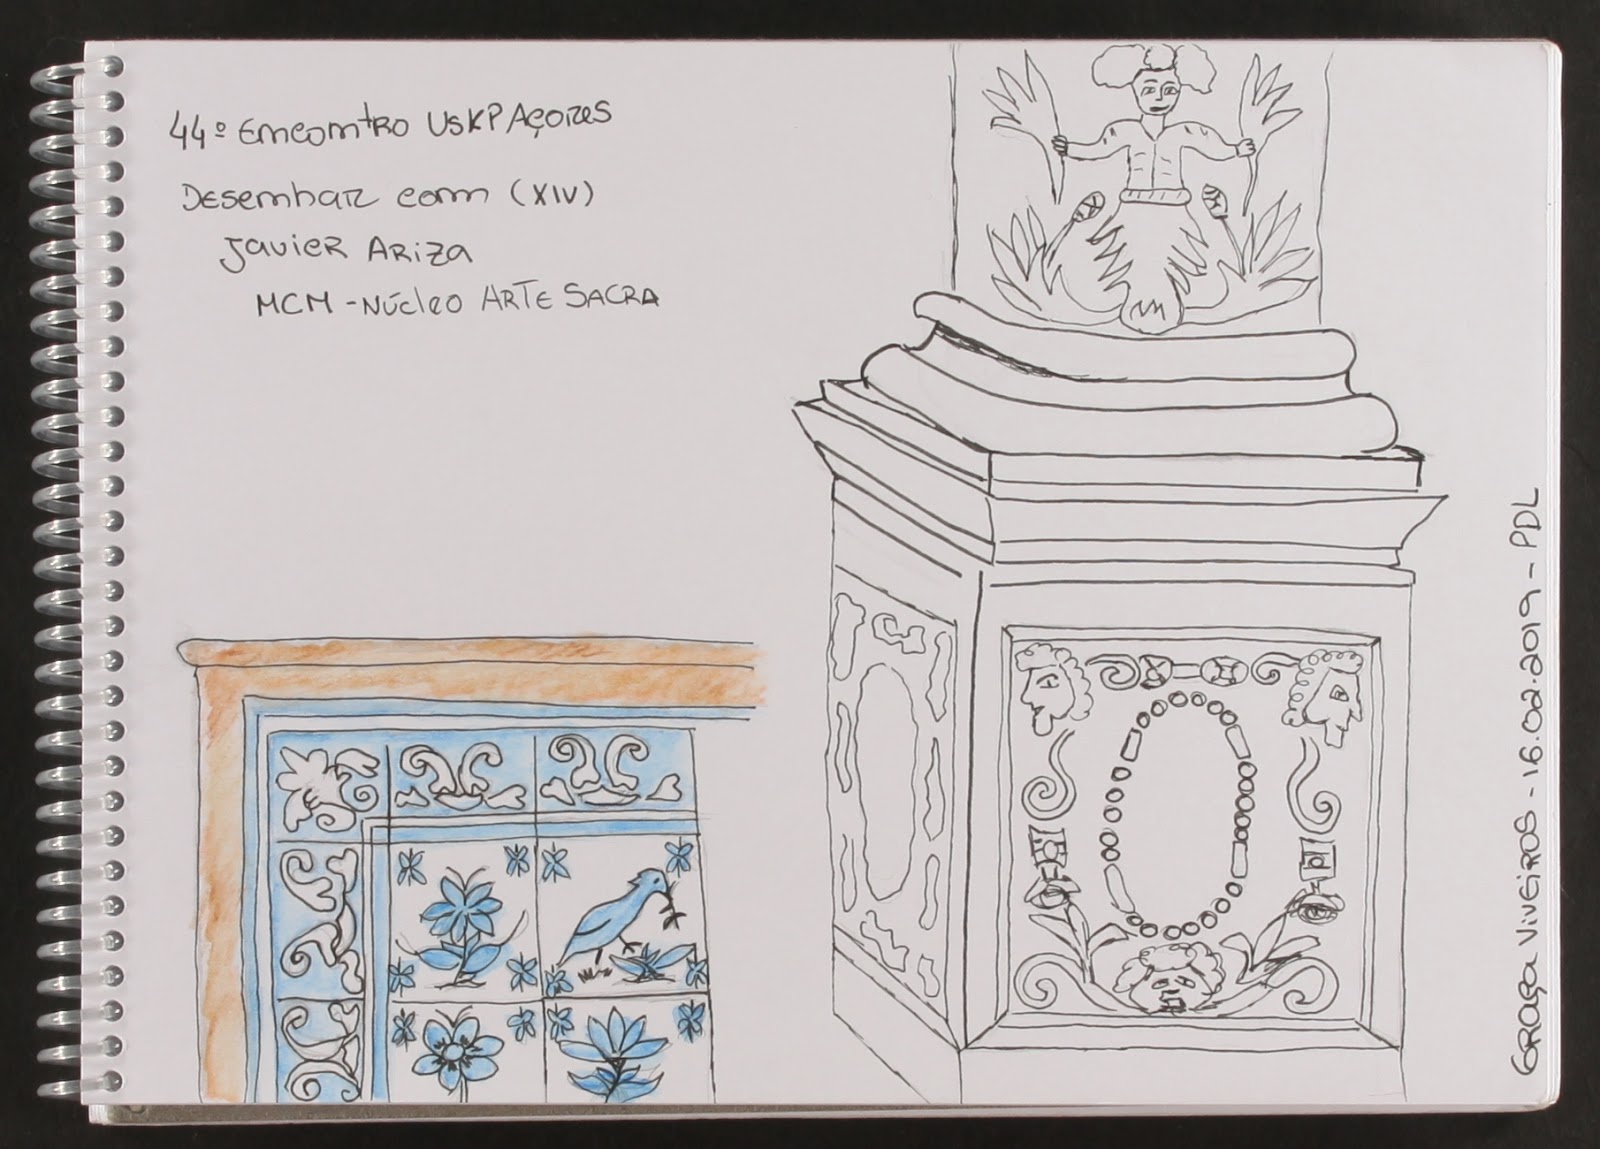 44º Encontro USKP Açores
Desenhar com (XIV)
Javier Ariza
MCM - Núcleo Arte Sacra
Graça Viveiros - 16.02.2019 - PDL